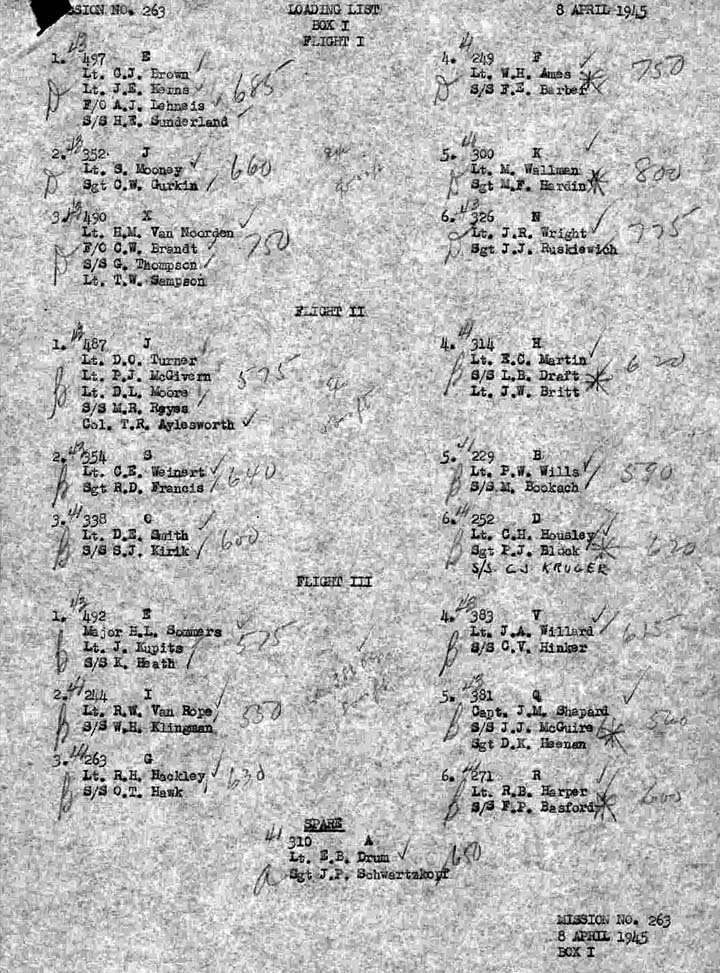 MISSION NO. 263 LOADING LIST 8 APRIL 1945
BOX I
FLIGHT I
1. 43 497 E
Lt. C.J. Brown
Lt. J.E. Kerns
F/O A.J. Lehneis 685
S/S H.E. Sunderland
2. 43 352 J
Lt. S. Mooney 660
Sgt C.W. Gurkin
3. 43 490 X
Lt. H.M. Van Noorden
F/O C.W. Brandt 750
S/S G. Thompson
Lt. T.W. Sampson
4. 41 249 F
Lt. W.H. Ames 750
S/S F.E. Barber
5. 41 300 K
Lt. M. Wallman 800
Sgt M.F. Hardin
6. 43 326 N
Lt. J.R. Wright 775
Sgt J.J. Ruskiewich
FLIGHT II
1. 43 487 J
Lt. D.C. Turner
Lt. P.J. McGivern 575
Lt. D.L. Moore
S/S M.R. Reyes
Col. T.R. Aylesworth
2. 43 354 S
Lt. C.E. Weinert 640
Sgt R.D. Francis
3. 41 338 O
Lt. D.E. Smith 600
S/S S.J. Kirik
4. 41 314 H
Lt. E.C. Martin 620
S/S L.B. Draft
Lt. J.W. Britt
5. 41 229 B
Lt. P.W. Wills 590
S/S M. Bookach
6. 41 252 D
Lt. C.H. Housley
Sgt P.J. Block 620
S/S CJ KRUGER
FLIGHT III
1. 43 492 E
Major H.L. Sommers
Lt. J. Kupits 575
S/S K. Heath
2. 41 244 I
Lt. R.W. Van Rope 550
S/S W.H. Klingman
3. 41 263 G
Lt. R.H. Hackley 630
S/S O.T. Hawk
4. 43 383 V
Lt. J.A. Willard 635
S/S C.V. Hinker
5. 43 381 Q
Capt. J.M. Shapard
S/S J.J. McGuire 560
Sgt D.K. Heenan
6. 41 271 R
Lt. R.B. Harper
S/S F.P. Basford
SPARE
41 310 A
Lt. E.B. Drum 650
Sgt J.P. Schwartzkopf
MISSION NO. 263
8 APRIL 1945
BOX I